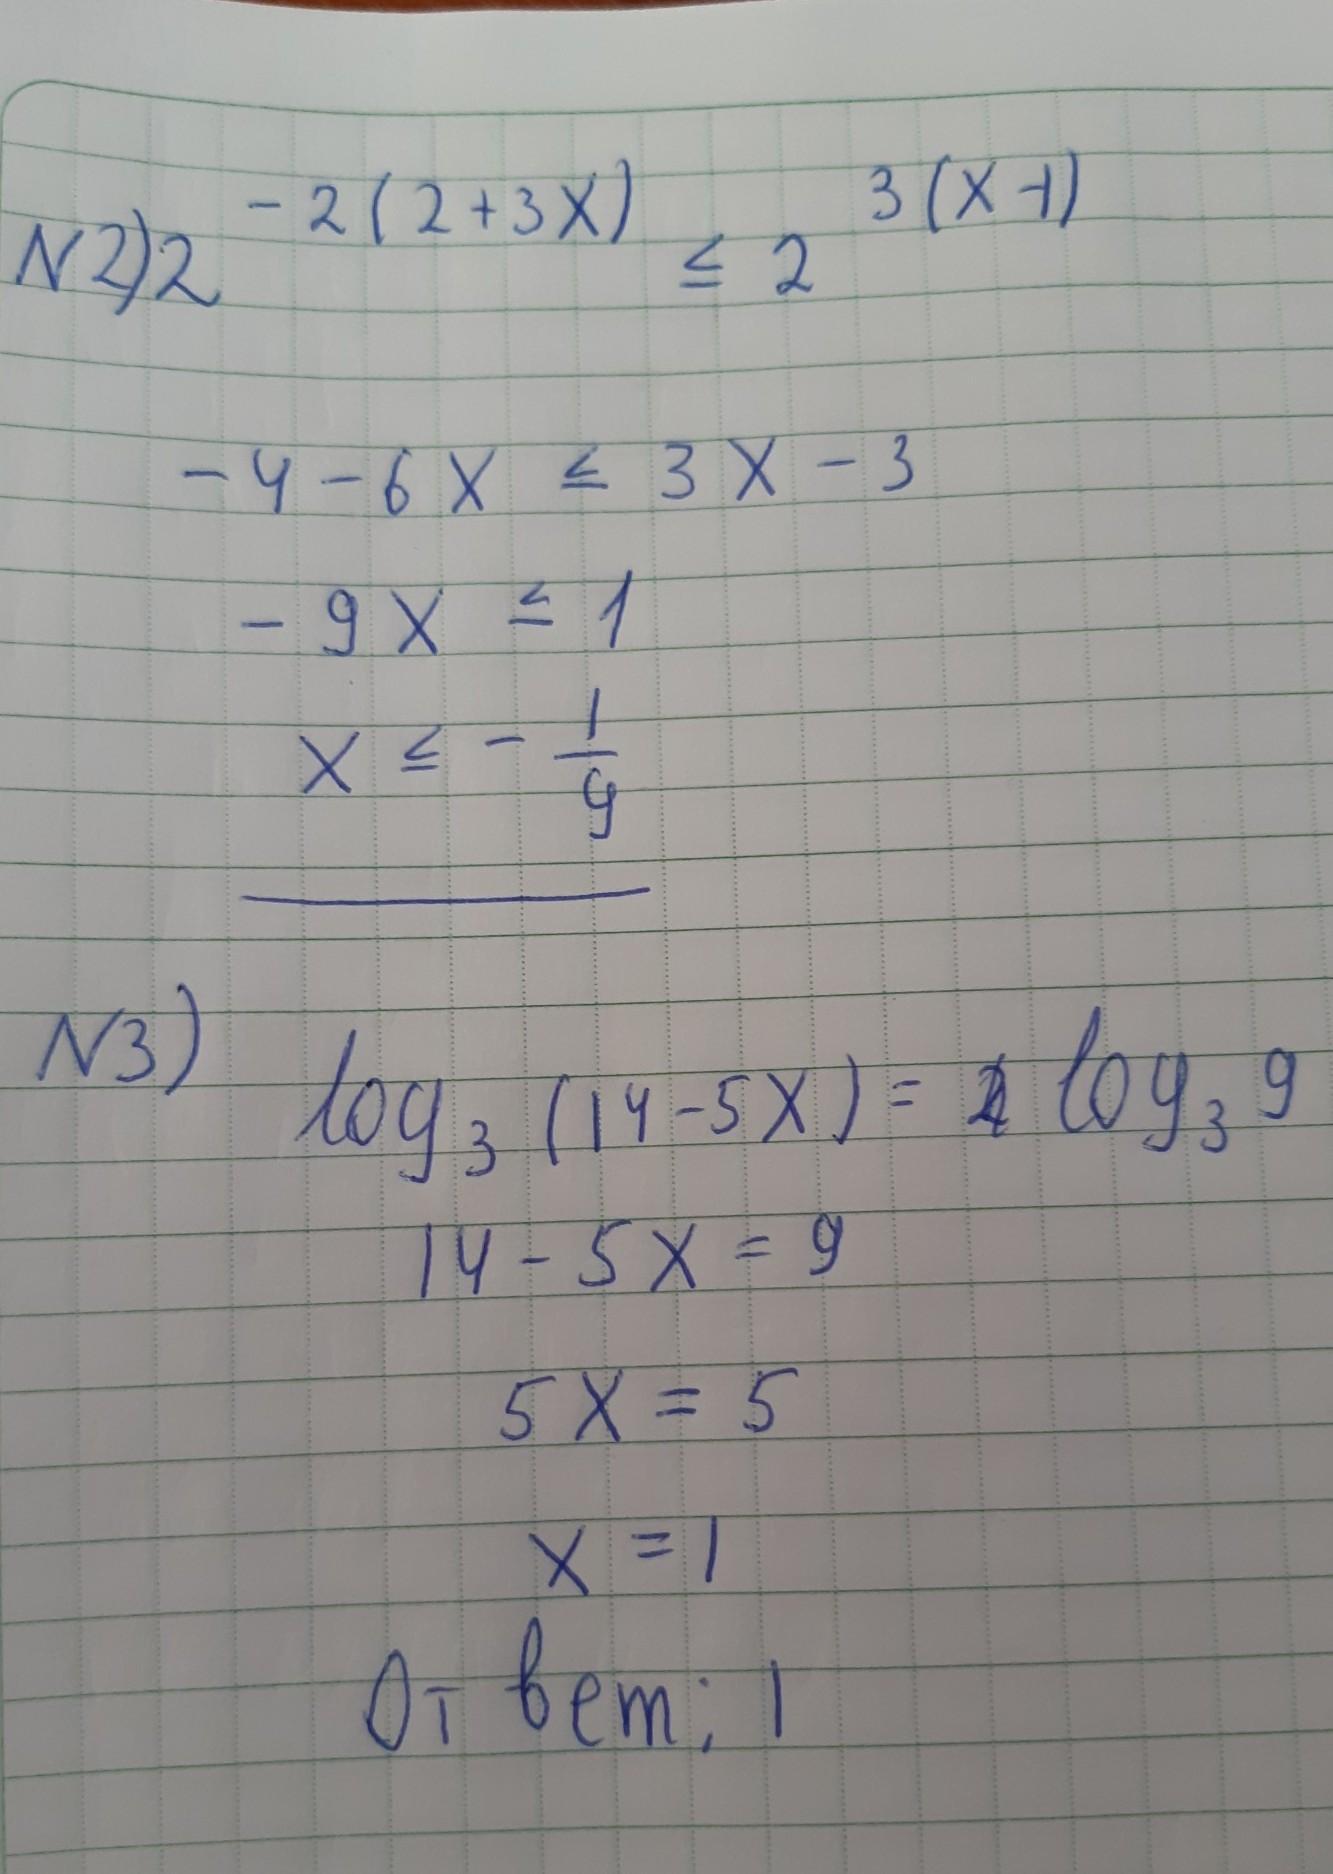 N2) 2^{-2(2+3x)} ≤ 2^{3(x-1)}
-4-6x ≤ 3x-3
-9x ≤ 1
x ≤ -1/9
N3) log₃(14-5x)= log₃9
14-5x=9
5x=5
x=1
Ответ; 1